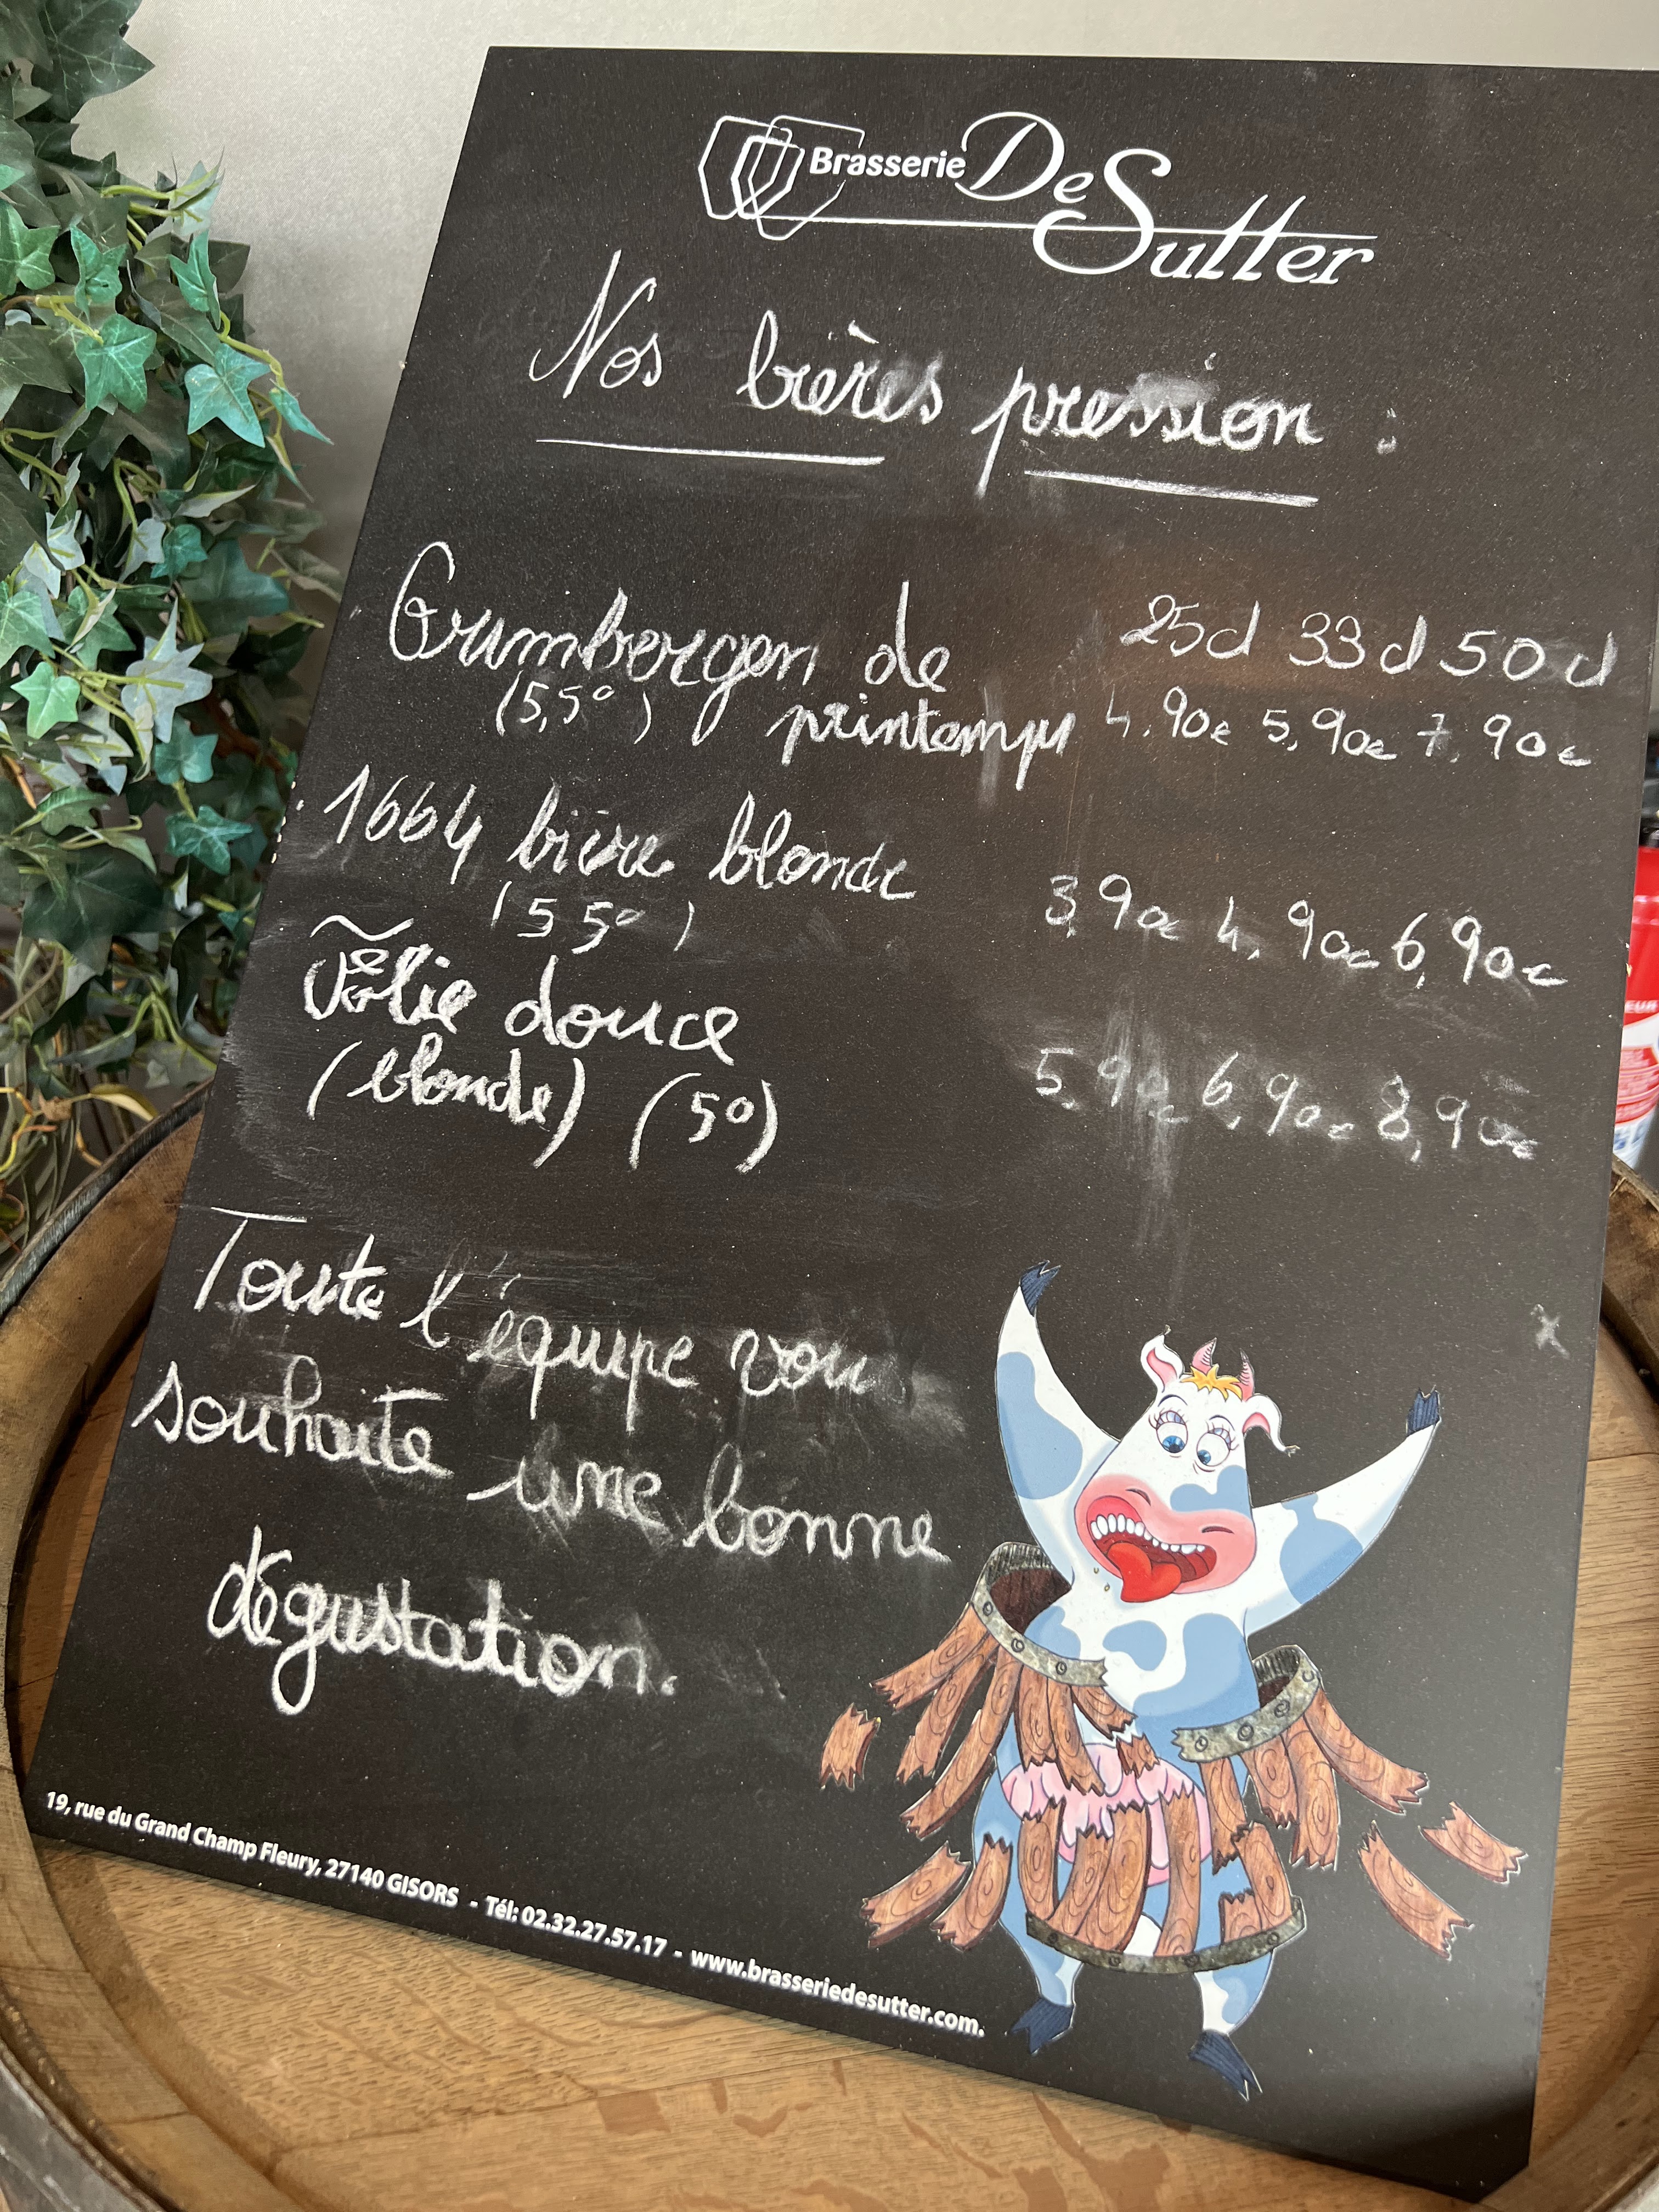 Brasserie De Sutter
Nos bières pression :
Grimbergen de 25cl 33cl 50cl
(5,5°) printemps 4,90€ 5,90€ 7,90€
1664 bière blonde
(5 5°) 3,90€ 4,90€ 6,90€
douce
(blonde) (5°) 5,90€ 6,90€ 8,90€
Toute l'équipe vous
souhaite une bonne
dégustation.
19, rue du Grand Champ Fleury, 27140 GISORS - Tél: 02.32.27.57.17 - www.brasseriedesutter.com.